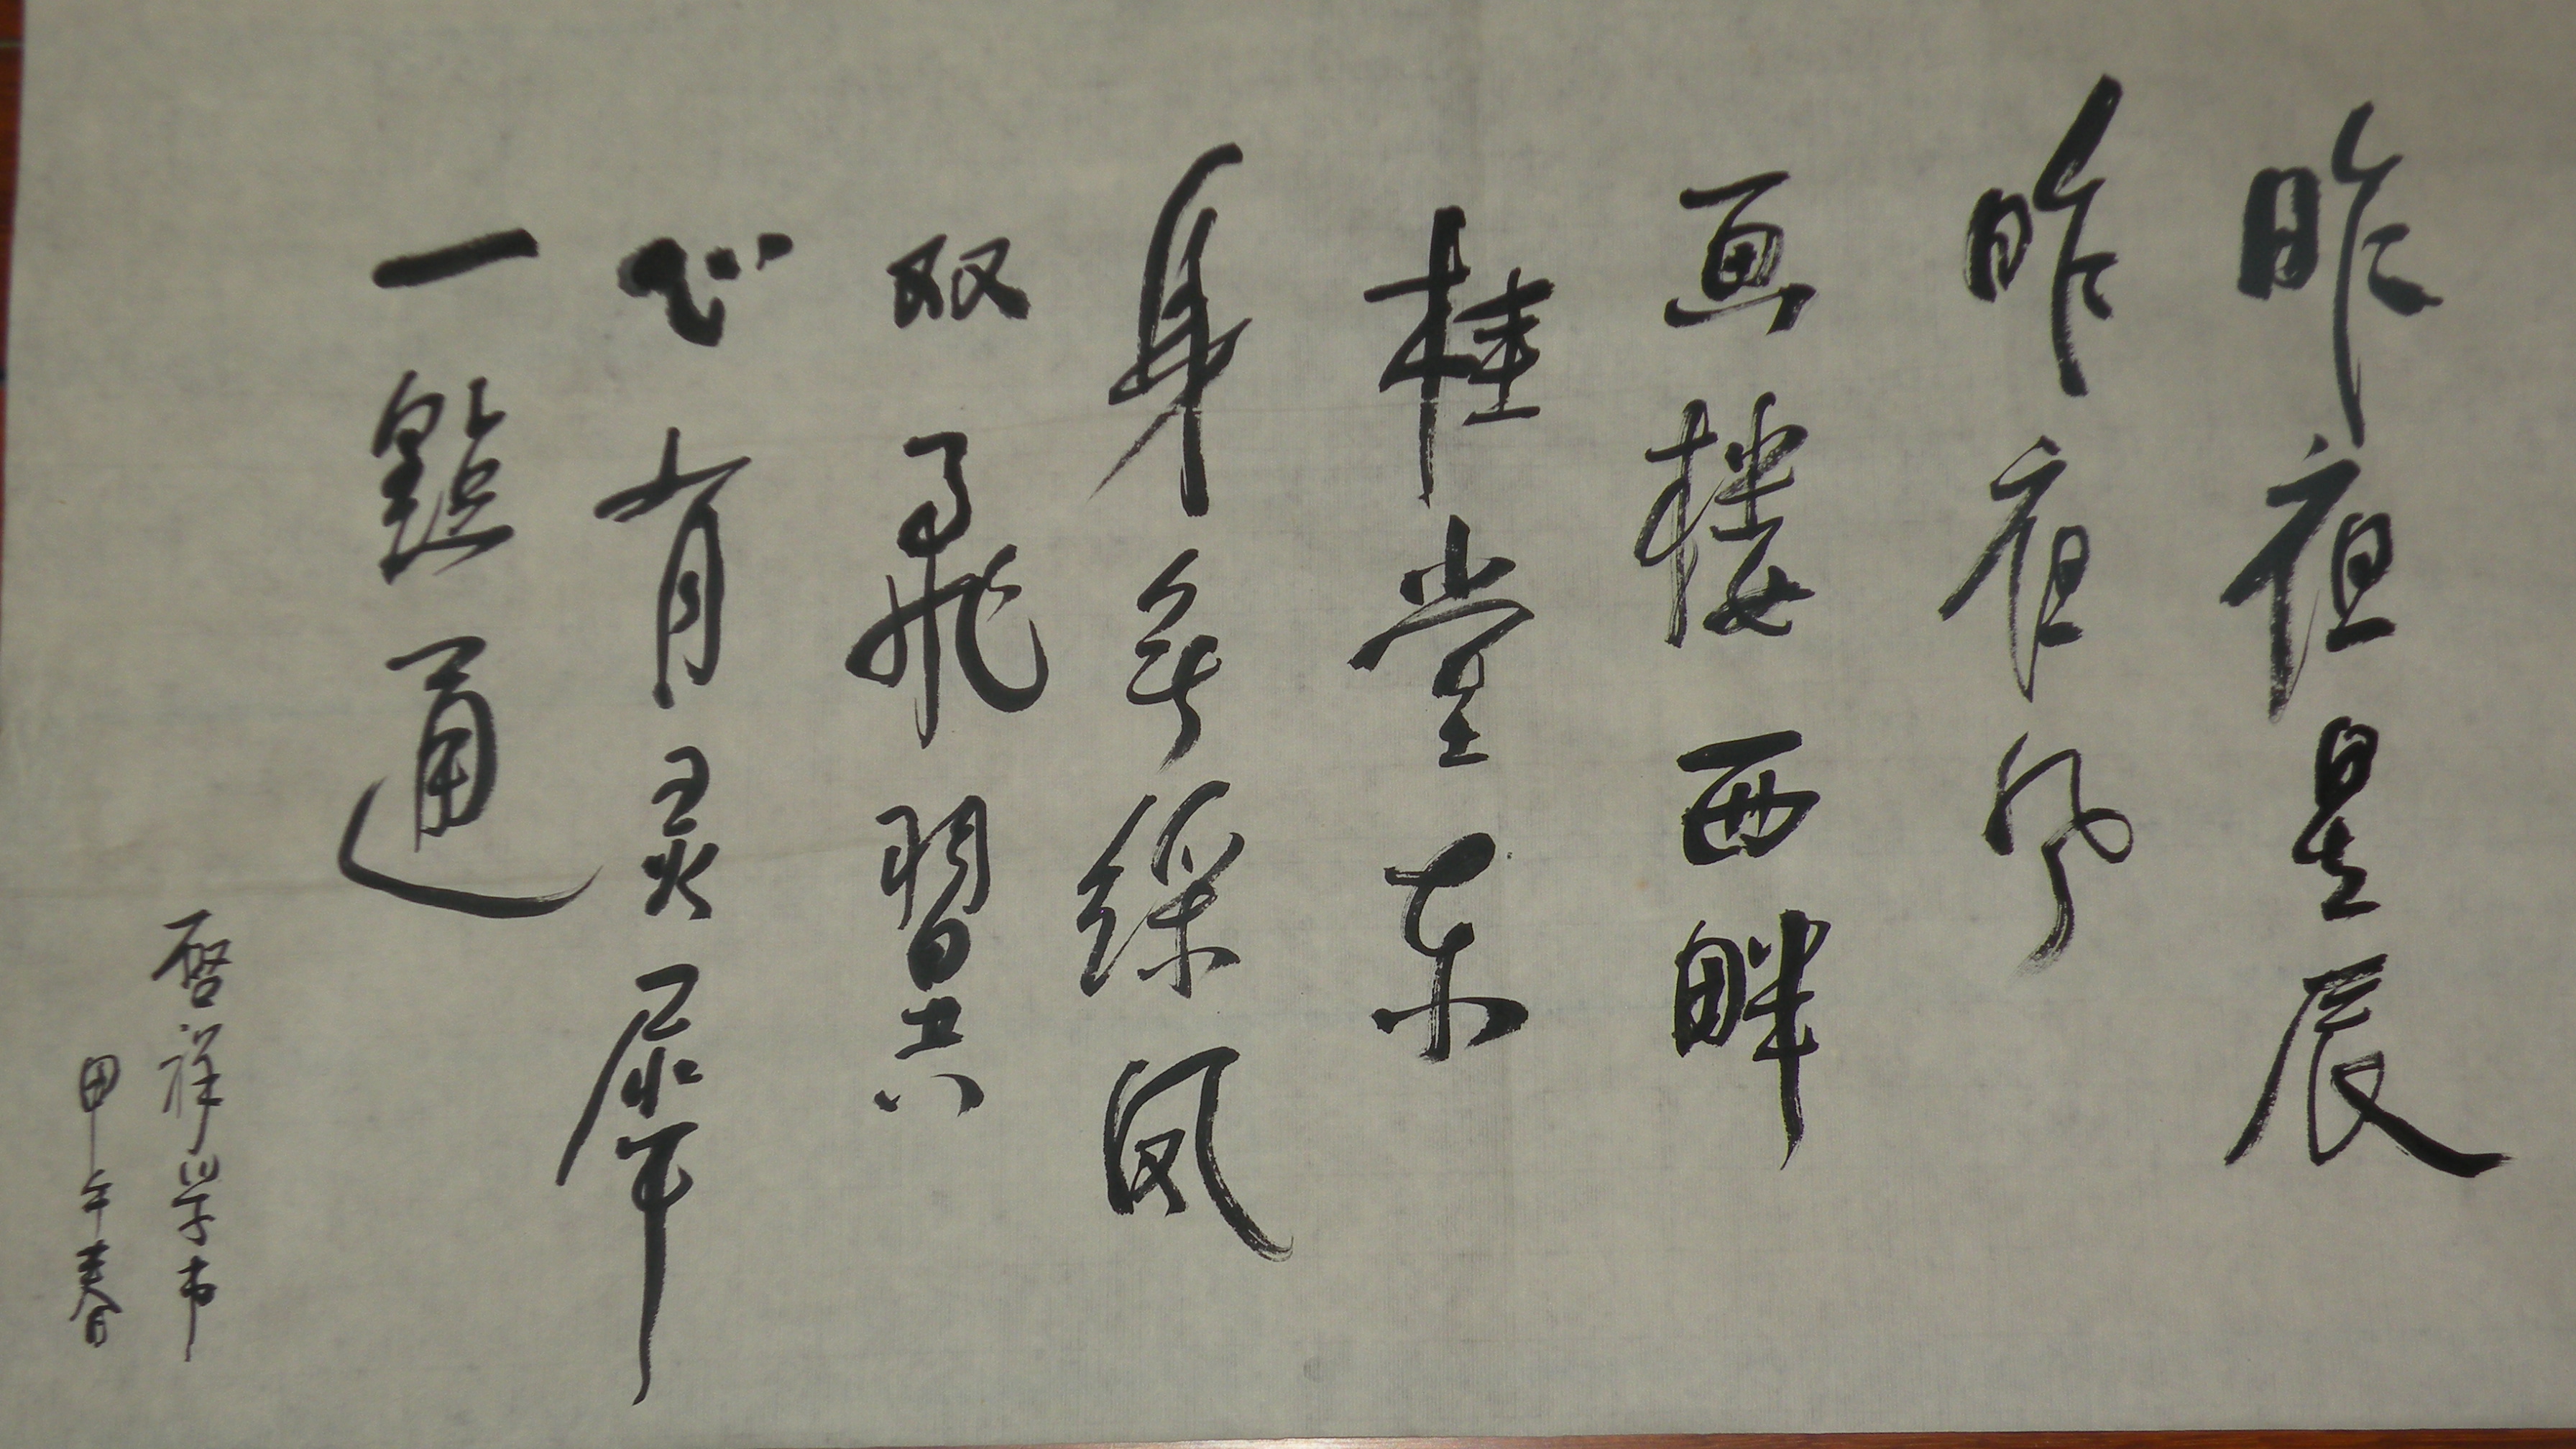 昨夜星辰
昨夜风
画楼西畔
桂堂东
身无綵凤
双飞翼
心有灵犀
一點通
啓祥学书
甲午春